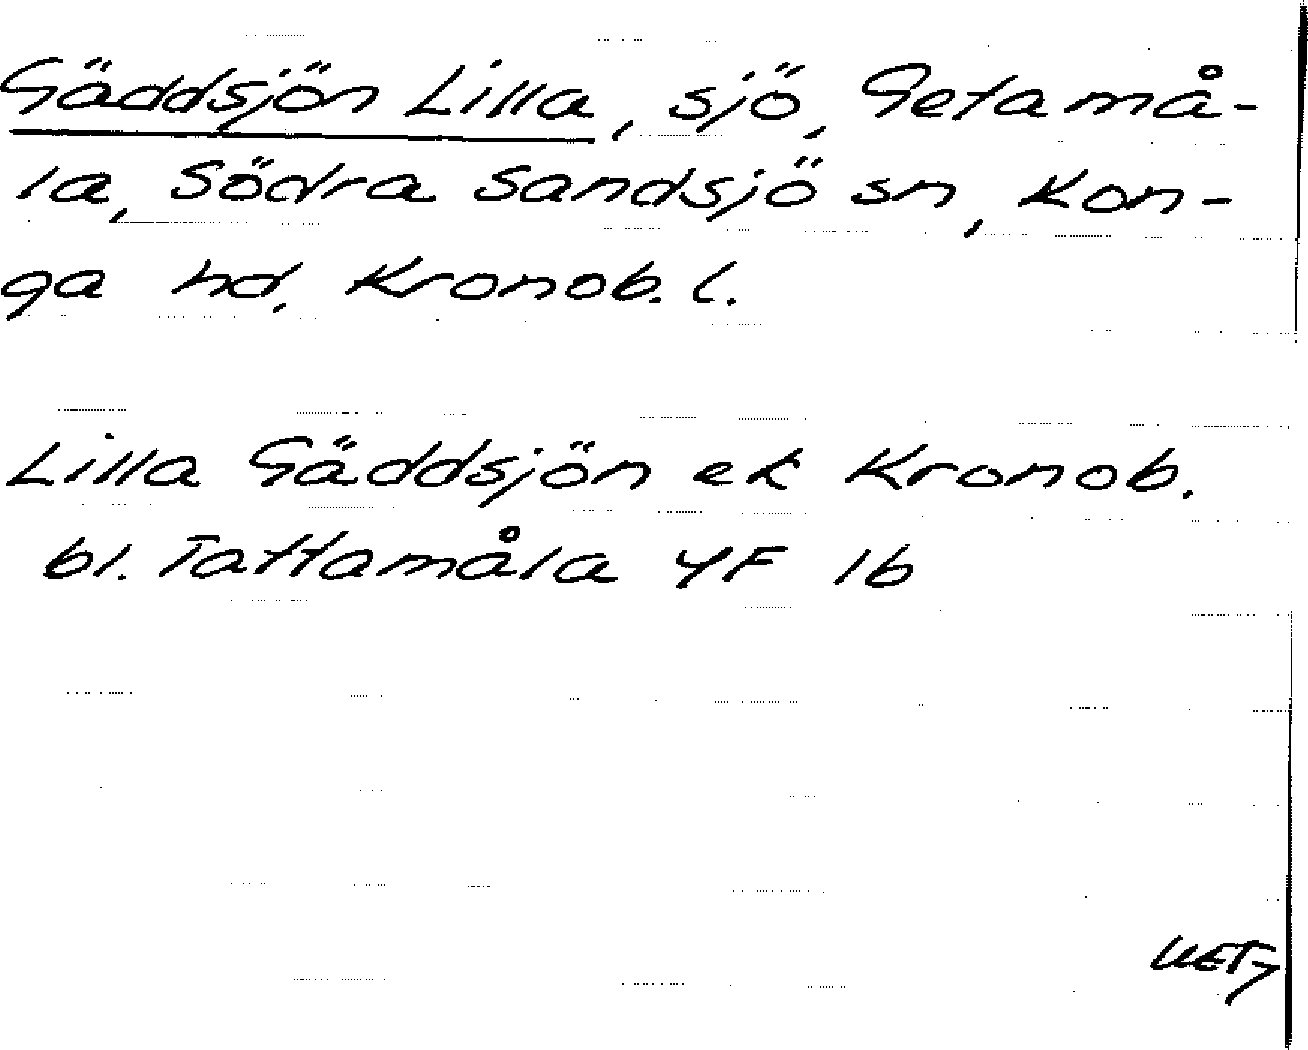 Gäddsjön Lilla, sjö, Getamå-
la, Södra Sandsjö sn, Kon-
ga hd, Kronob. l.
Lilla Gäddsjön ek Kronob.
bl. Tattamåla 4F 1b